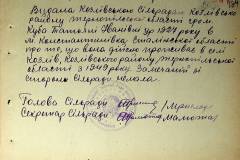 Видана Козлівською Сільрадою Козлівського
району Тернопільської області гром.
Куба Татьяні Іванівні ур 1927 року в
м. Константинівка Сталінської області
про те, що вона дійсно проживає в селі
Козлів, Козлівського району, Тернопільської
області з 1949 року. Замечаній зі
сторони Сільради немала.
Голова Сільради
Секретар Сільради